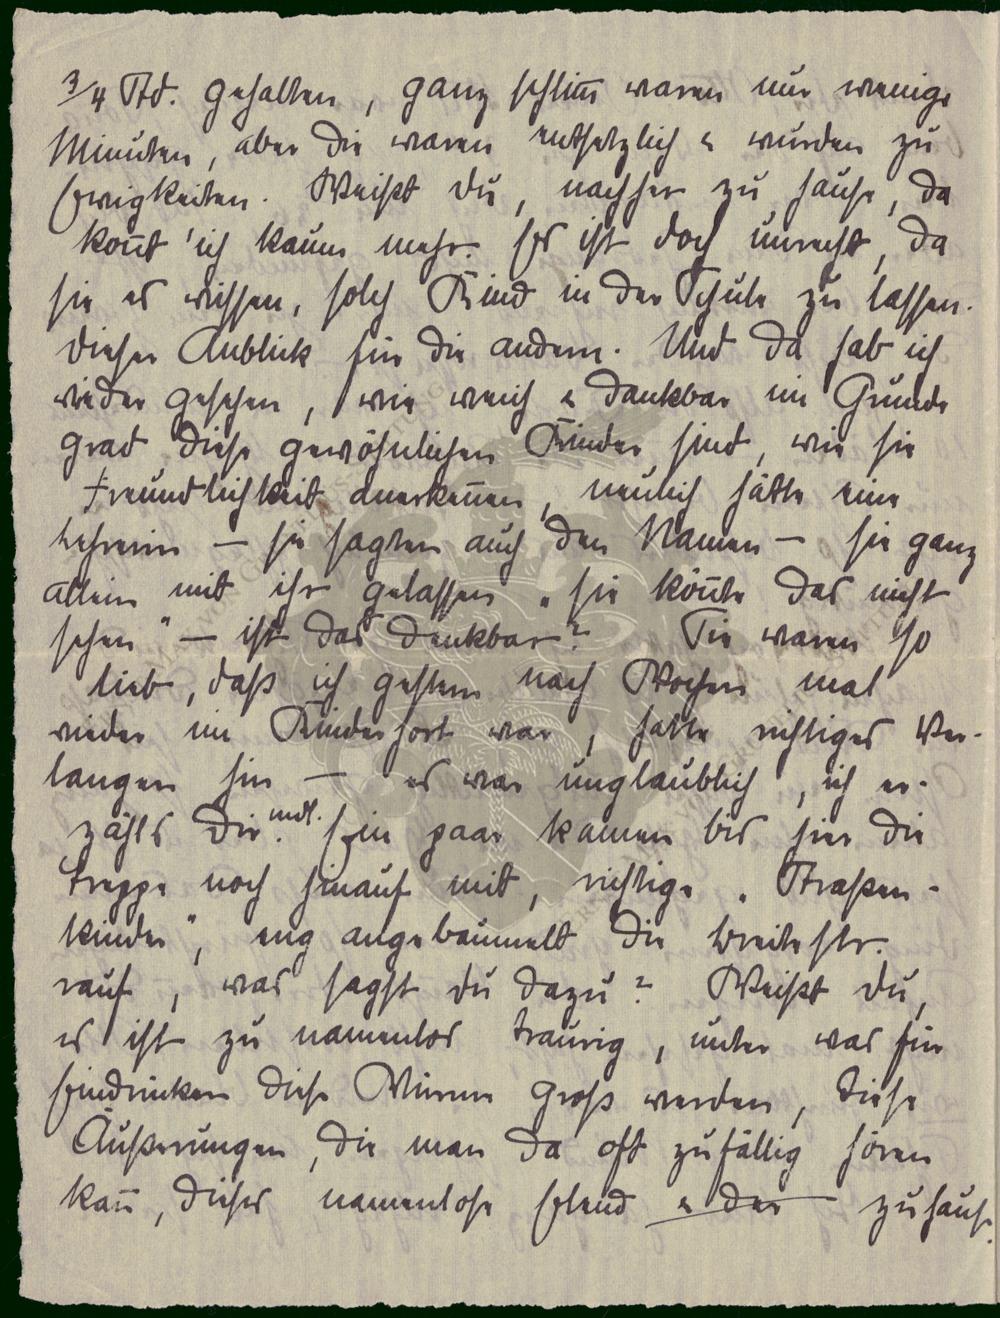 3/4 Std. gehalten, ganz schlim̅ waren nur wenige
Minuten, aber die waren entsetzlich & wurden zu
Ewigkeiten. Weißt du, nachher zu hause, da
kon̅t' ich kaum mehr. Es ist doch unrecht, da
sie es wissen, solch Kind in der Schule zu lassen.
dieser Anblick für die andern. Und da hab ich
wieder gesehen, wie weich & dankbar im Grunde
grad diese gewöhnlichen Kinder sind, wie sie
Freundlichkeit anerken̅en, neulich hätte eine
Lehrerin — sie sagten auch den Namen — sie ganz
allein mit ihr gelassen „sie kön̅te das nicht
sehen" — ist das denkbar? Sie waren so
lieb, daß ich gestern nach Wochen mal
wieder im Kinderhort war, hatte richtiges Ver-
langen hin — es war unglaublich, ich er-
zähls Dir mdl. Ein paar kamen bis hier die
Treppe noch hinauf mit, richtige „Straßen-
kinder", eng angebaumelt die Breitestr.
rauf, was sagst du dazu? Weißt du,
es ist zu namenlos traurig, unter was für
Eindrücken diese Würmer groß werden, diese
Äußerungen, die man da oft zufällig hören
kan̅, dieses namenlose Elend & der zuhause.